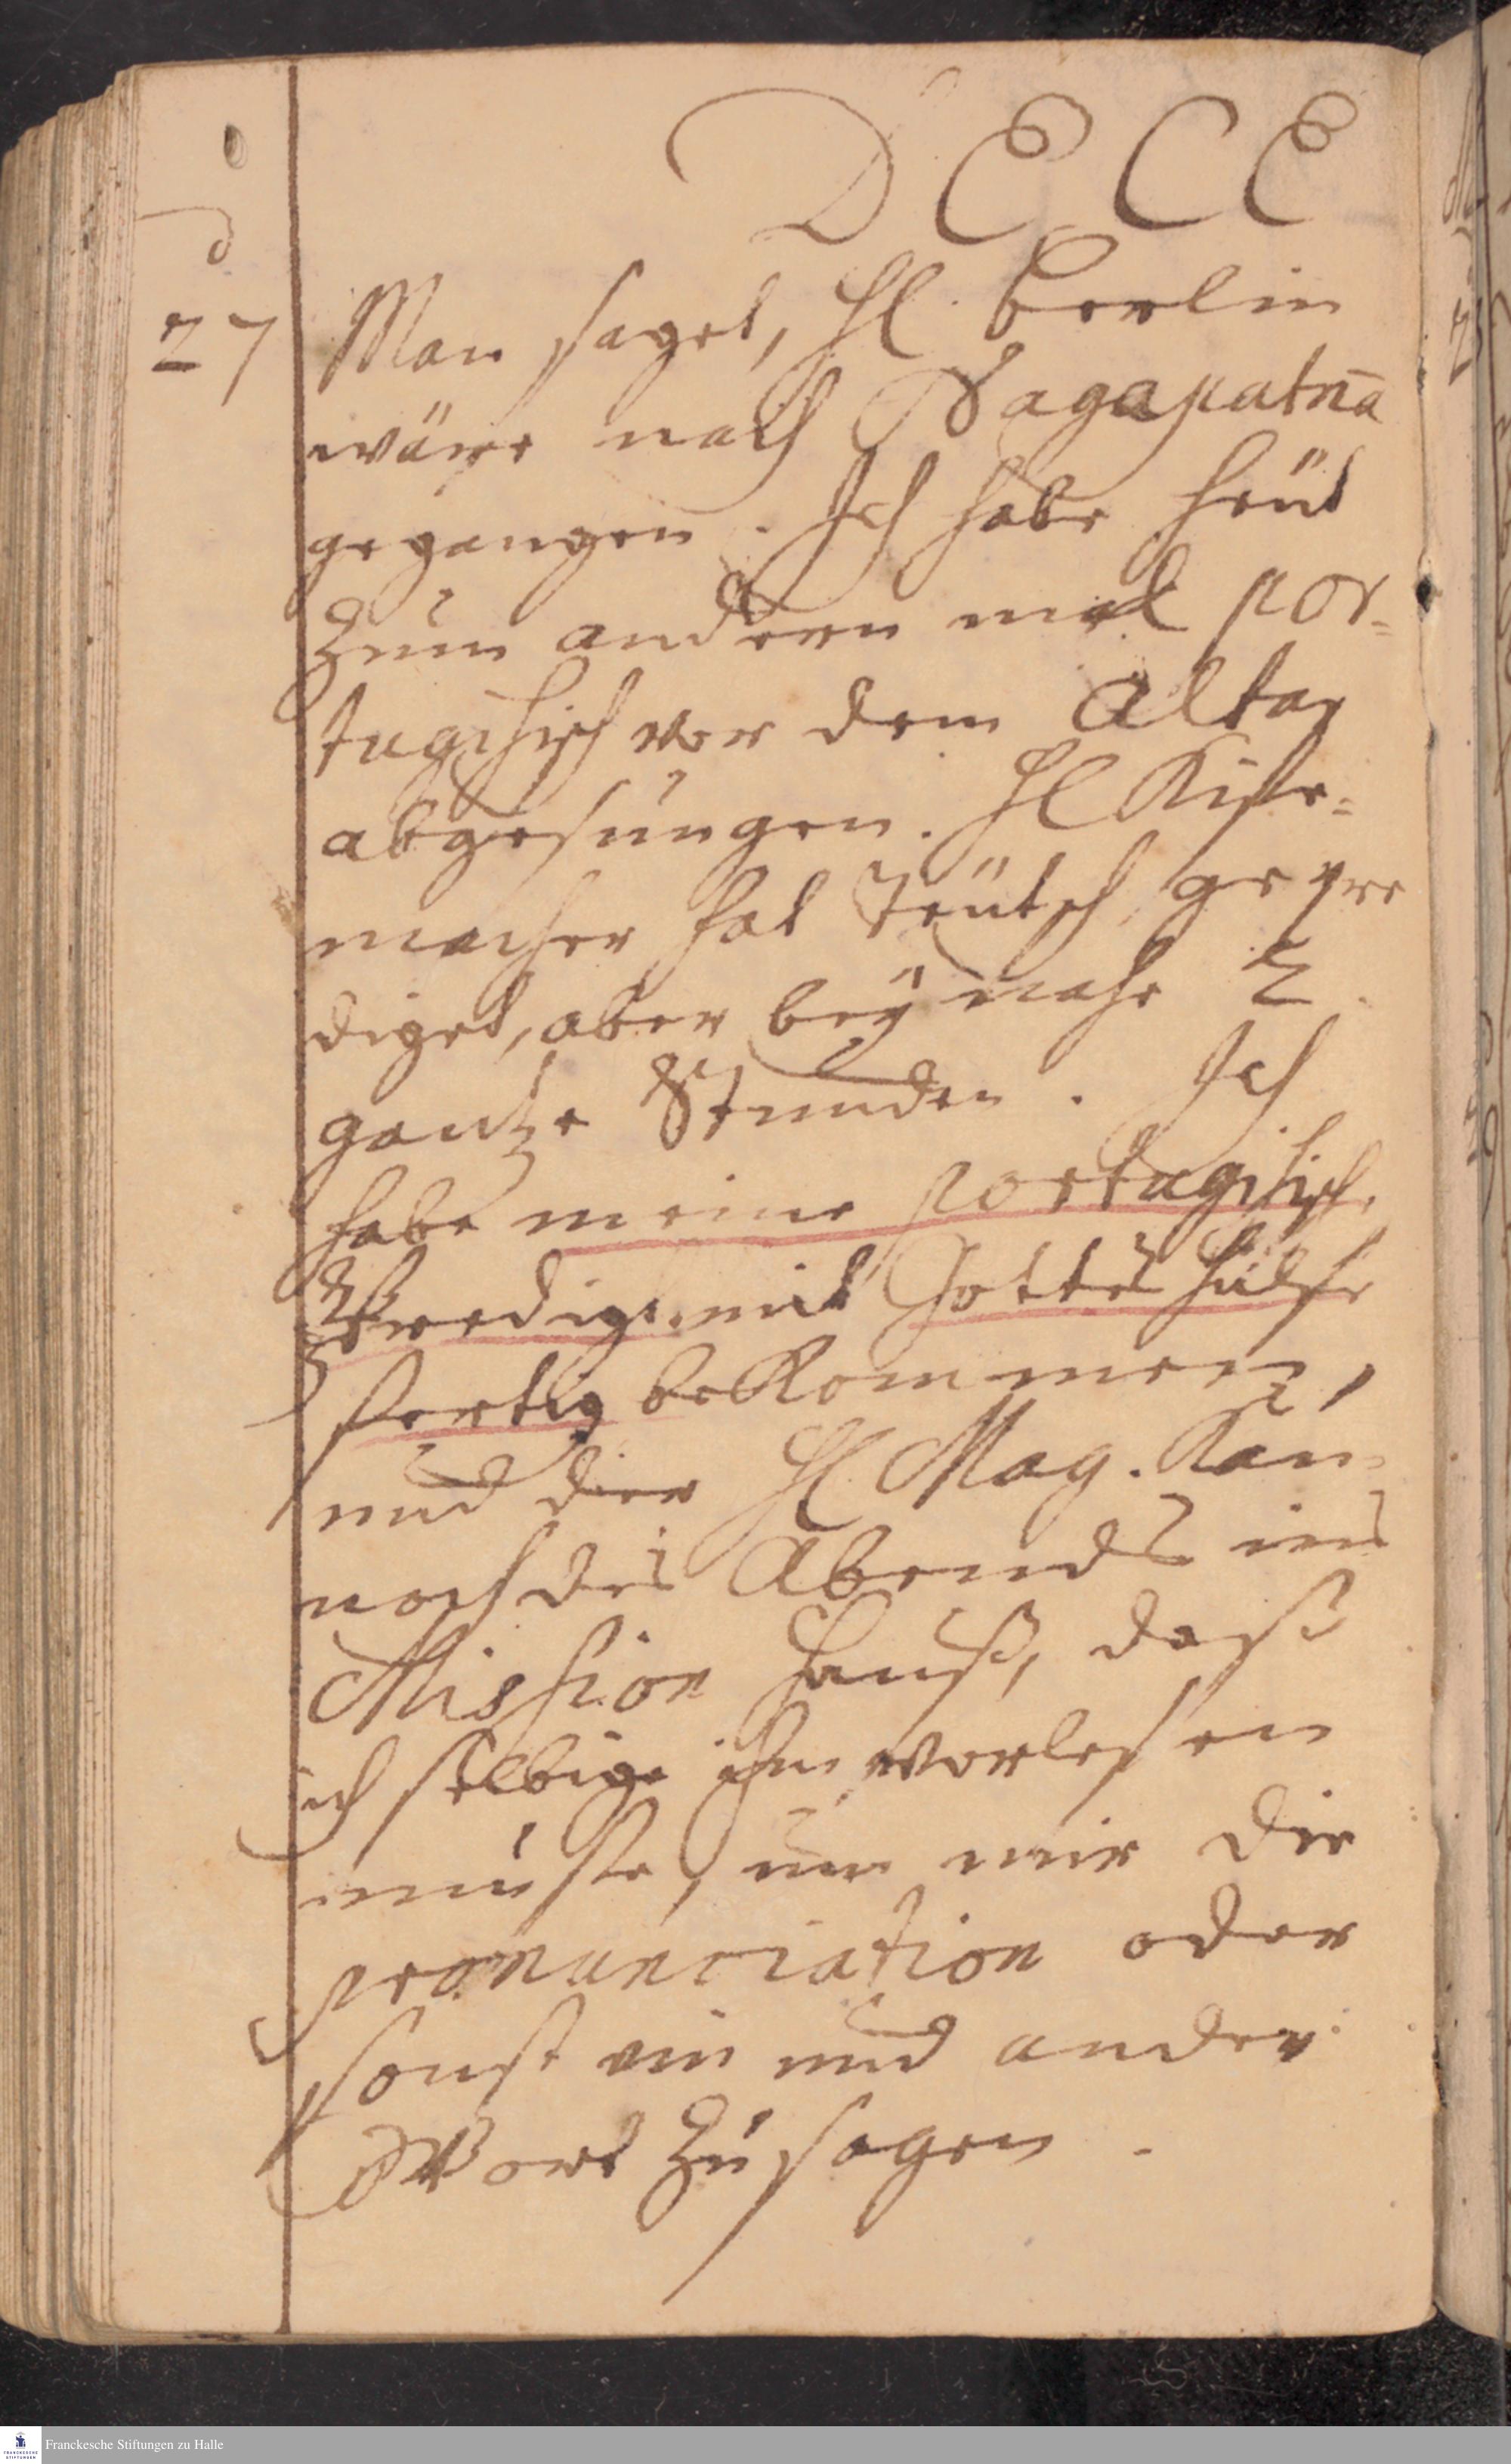 DECE
d
27 Man saget, Hl. Berlin
wäre nach Nagapatnā
gegangen. Ich habe heüt
zum andern mal por-
tugisisch vor dem Altar
abgesungen. Hl Kiste-
macher hat Teütsch gepre
diget, aber beÿ nahe 2
gantze Stunden. Ich
habe meine portugisische
Predigt mit Gottes hülfe
fertig bekommen,
und der Hl. Mag. kam
noch des Abends ins
Mission Hauß, daß
ich selbige ihm vorlesen
muste, um mir die
pronunciation oder
sonst ein und ander
Wort zu sagen.
Franckesche Stiftungen zu Halle